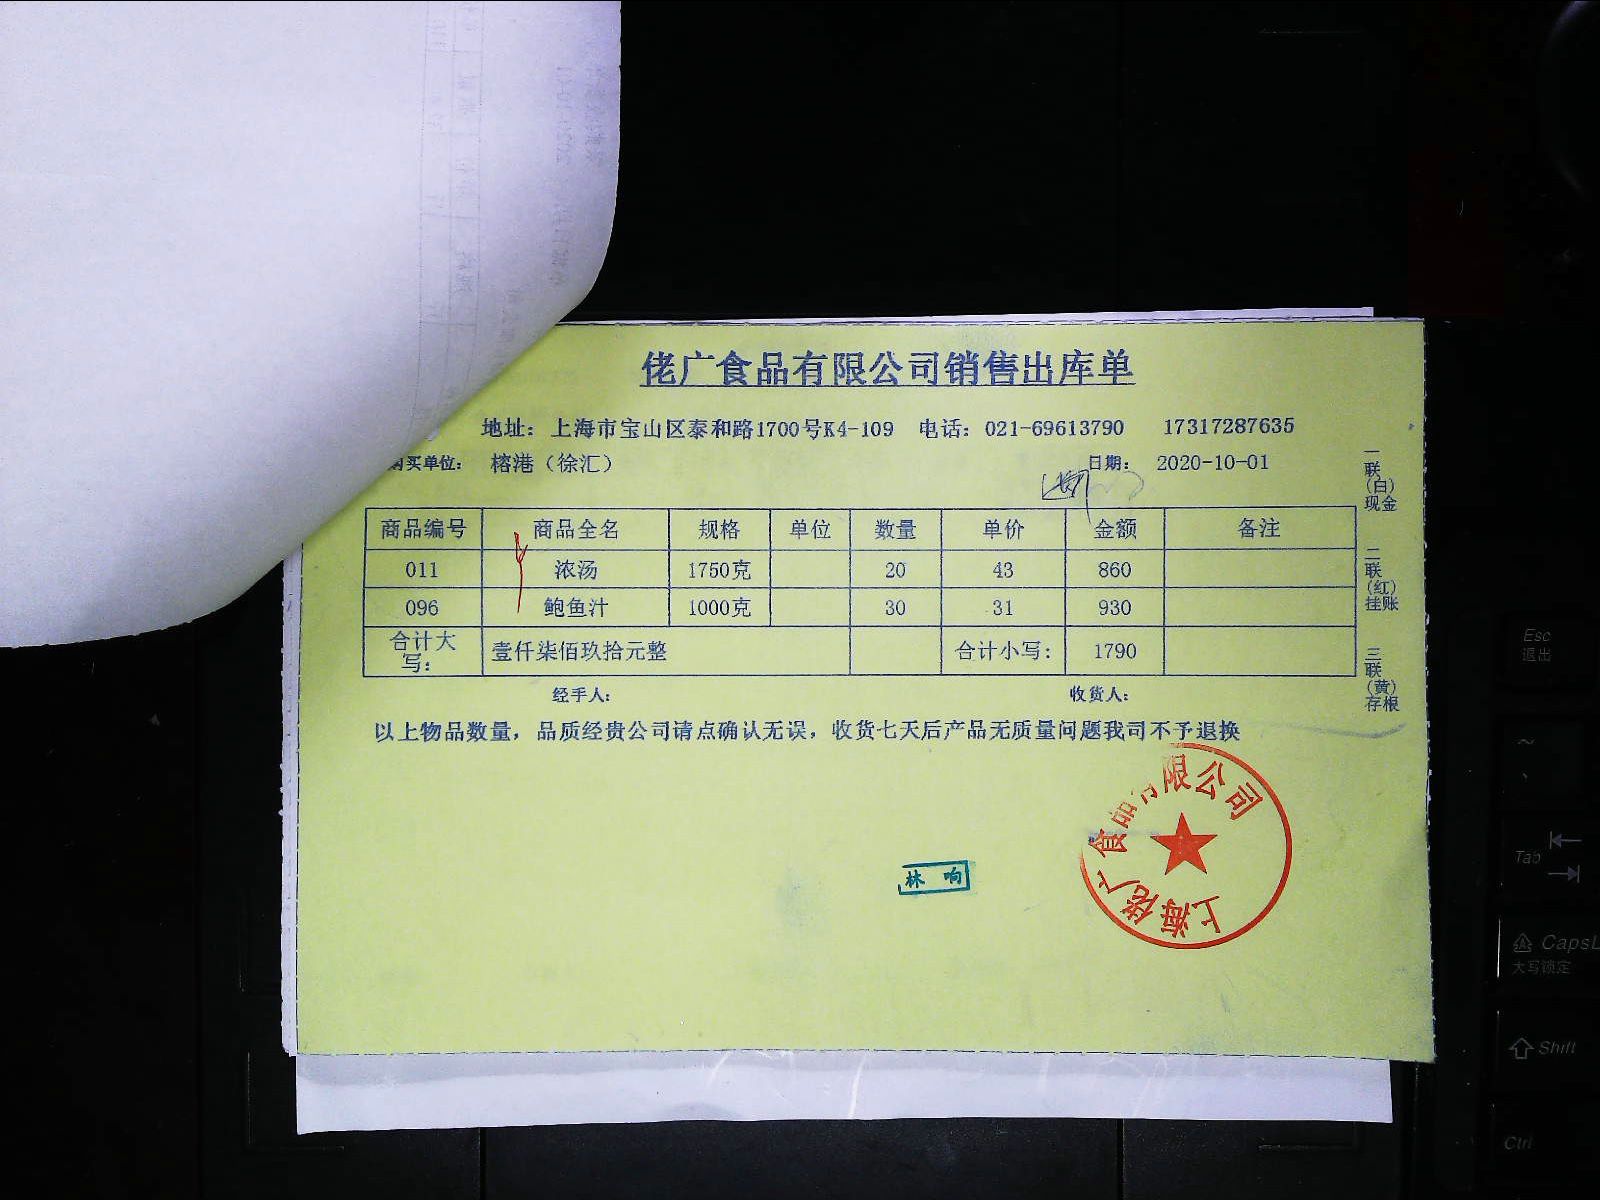 佬广食品有限公司销售出库单
地址：上海市宝山区泰和路1700号K4-109 电话：021-69613790 17317287635
购买单位： 榕港（徐汇） 日期： 2020-10-01
商品编号 商品全名 规格 单位 数量 单价 金额 备注
011 浓汤 1750克 20 43 860
096 鲍鱼汁 1000克 30 31 930
合计大写： 壹仟柒佰玖拾元整 合计小写： 1790
经手人： 收货人：
以上物品数量，品质经贵公司请点确认无误，收货七天后产品无质量问题我司不予退换
一联（白）现金
二联（红）挂账
三联（黄）存根
上海佬广食品有限公司
林响
Esc
退出
~
Tab
CapsL
大写锁定
Shift
Ctrl